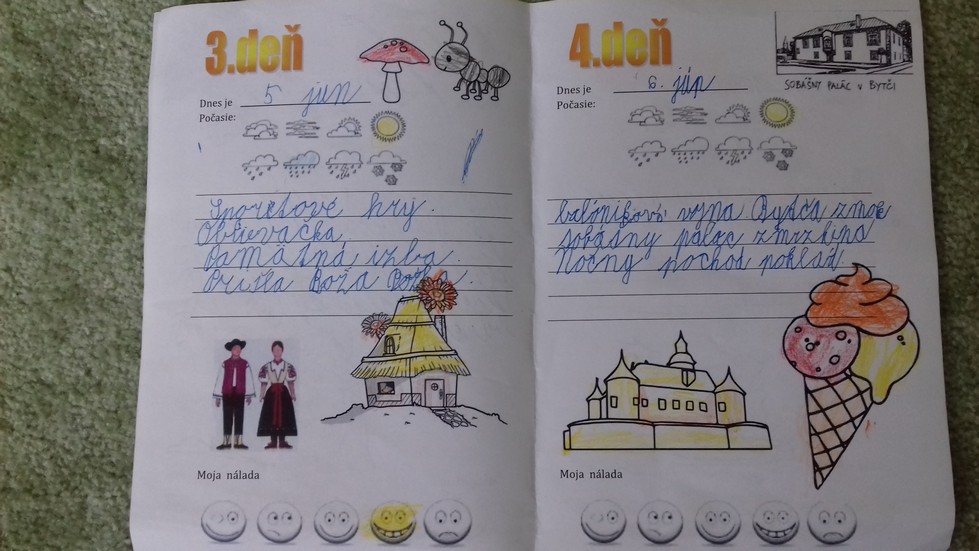 3.deň
Dnes je 5 jún
Počasie:
Sporctové hry.
Obšívačka
Pamätná izba
Prišla Róža
Moja nálada
4.deň
SOBÁŠNY PALÁC V BYTČI
Dnes je 6. jún
Počasie:
Bytča zmok
sobášny pálac zmrzlina
Nočný pochod poklad
Moja nálada